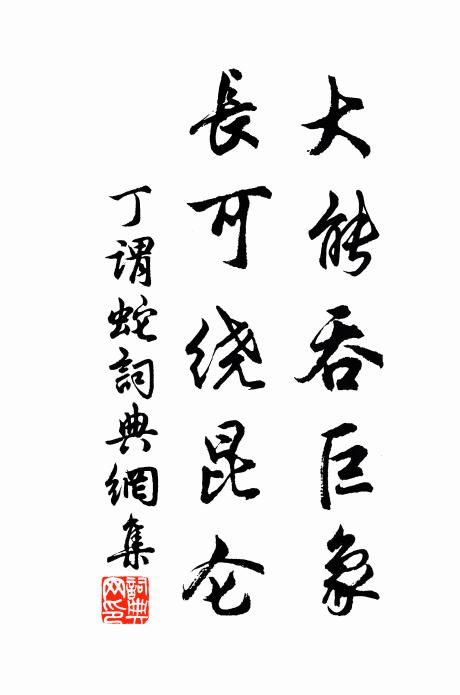 大能吞巨象
長可绕昆仑
丁谓蛇詞典網集
詞典网印